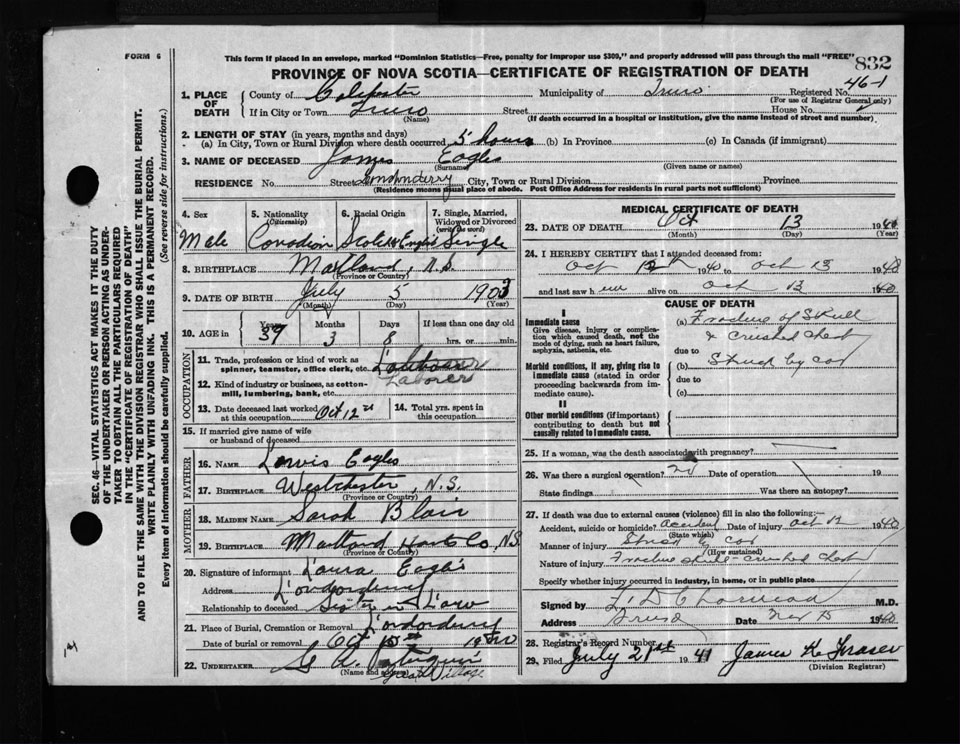 FORM 6
This form if placed in an envelope, marked "Dominion Statistics—Free, penalty for improper use $300," and properly addressed will pass through the mail "FREE"
832
PROVINCE OF NOVA SCOTIA—CERTIFICATE OF REGISTRATION OF DEATH
46-1
1. PLACE OF DEATH
County of Colchester Municipality of Truro Registered No.
(For use of Registrar General only)
If in City or Town Truro Street House No.
(Name) (If death occurred in a hospital or institution, give the name instead of street and number)
2. LENGTH OF STAY (in years, months and days)
(a) In City, Town or Rural Division where death occurred 5 hours (b) In Province (c) In Canada (if immigrant)
3. NAME OF DECEASED James Eagles
(Surname) (Given name or names)
RESIDENCE No. Street Londonderry City, Town or Rural Division Province
(Residence means usual place of abode. Post Office Address for residents in rural parts not sufficient)
4. Sex 5. Nationality (Citizenship) 6. Racial Origin 7. Single, Married, Widowed or Divorced (write the word)
Male Canadian Single
8. BIRTHPLACE Maitland, N.S.
(Province or Country)
9. DATE OF BIRTH July 5 1903
(Month) (Day) (Year)
10. AGE in Years Months Days If less than one day old
37 3 8 hrs. or min.
OCCUPATION
11. Trade, profession or kind of work as spinner, teamster, office clerk, etc.
Laborer
12. Kind of industry or business, as cotton-mill, lumbering, bank, etc.
13. Date deceased last worked at this occupation Oct 12
14. Total yrs. spent in this occupation
15. If married give name of wife or husband of deceased
FATHER
16. NAME Eagles
17. BIRTHPLACE Westchester, N.S.
(Province or Country)
MOTHER
18. MAIDEN NAME Sarah Blair
19. BIRTHPLACE Maitland Hants Co, N.S.
(Province or Country)
20. Signature of informant Laura Eagles
Address Londonderry
Relationship to deceased Sister in Law
21. Place of Burial, Cremation or Removal Londonderry
Date of burial or removal Oct 15 1940
22. UNDERTAKER
(Name and address) Great Village
MEDICAL CERTIFICATE OF DEATH
23. DATE OF DEATH Oct 13 1940
(Month) (Day) (Year)
24. I HEREBY CERTIFY that I attended deceased from
Oct 12 1940 to Oct 13 1940
and last saw him alive on Oct 13 1940
CAUSE OF DEATH
I
Immediate cause
Give disease, injury or complication which caused death, not the mode of dying, such as heart failure, asphyxia, asthenia, etc.
(a) Fracture of Skull
& crushed chest
due to
Morbid conditions, if any, giving rise to immediate cause (stated in order proceeding backwards from immediate cause).
(b) Struck by car
due to
(c)
II
Other morbid conditions (if important) contributing to death but not causally related to immediate cause.
25. If a woman, was the death associated with pregnancy?
26. Was there a surgical operation? no Date of operation 19
State findings Was there an autopsy?
27. If death was due to external causes (violence) fill in also the following:—
Accident, suicide or homicide? accident Date of injury Oct 12 1940
(State which)
Manner of injury Struck by car
(How sustained)
Nature of injury Fracture skull - crushed chest
Specify whether injury occurred in industry, in home, or in public place
Signed by M.D.
Address Truro Date 1940
28. Registrar's Record Number
29. Filed July 21st 1941 James K Fraser
(Division Registrar)
SEC. 46—VITAL STATISTICS ACT MAKES IT THE DUTY
OF THE UNDERTAKER OR PERSON ACTING AS UNDER-
TAKER TO OBTAIN ALL THE PARTICULARS REQUIRED
IN THE "CERTIFICATE OF REGISTRATION OF DEATH"
AND TO FILE THE SAME WITH THE DIVISION REGISTRAR WHO SHALL ISSUE THE BURIAL PERMIT.
WRITE PLAINLY WITH UNFADING INK. THIS IS A PERMANENT RECORD.
Every item of information should be carefully supplied. (See reverse side for instructions.)